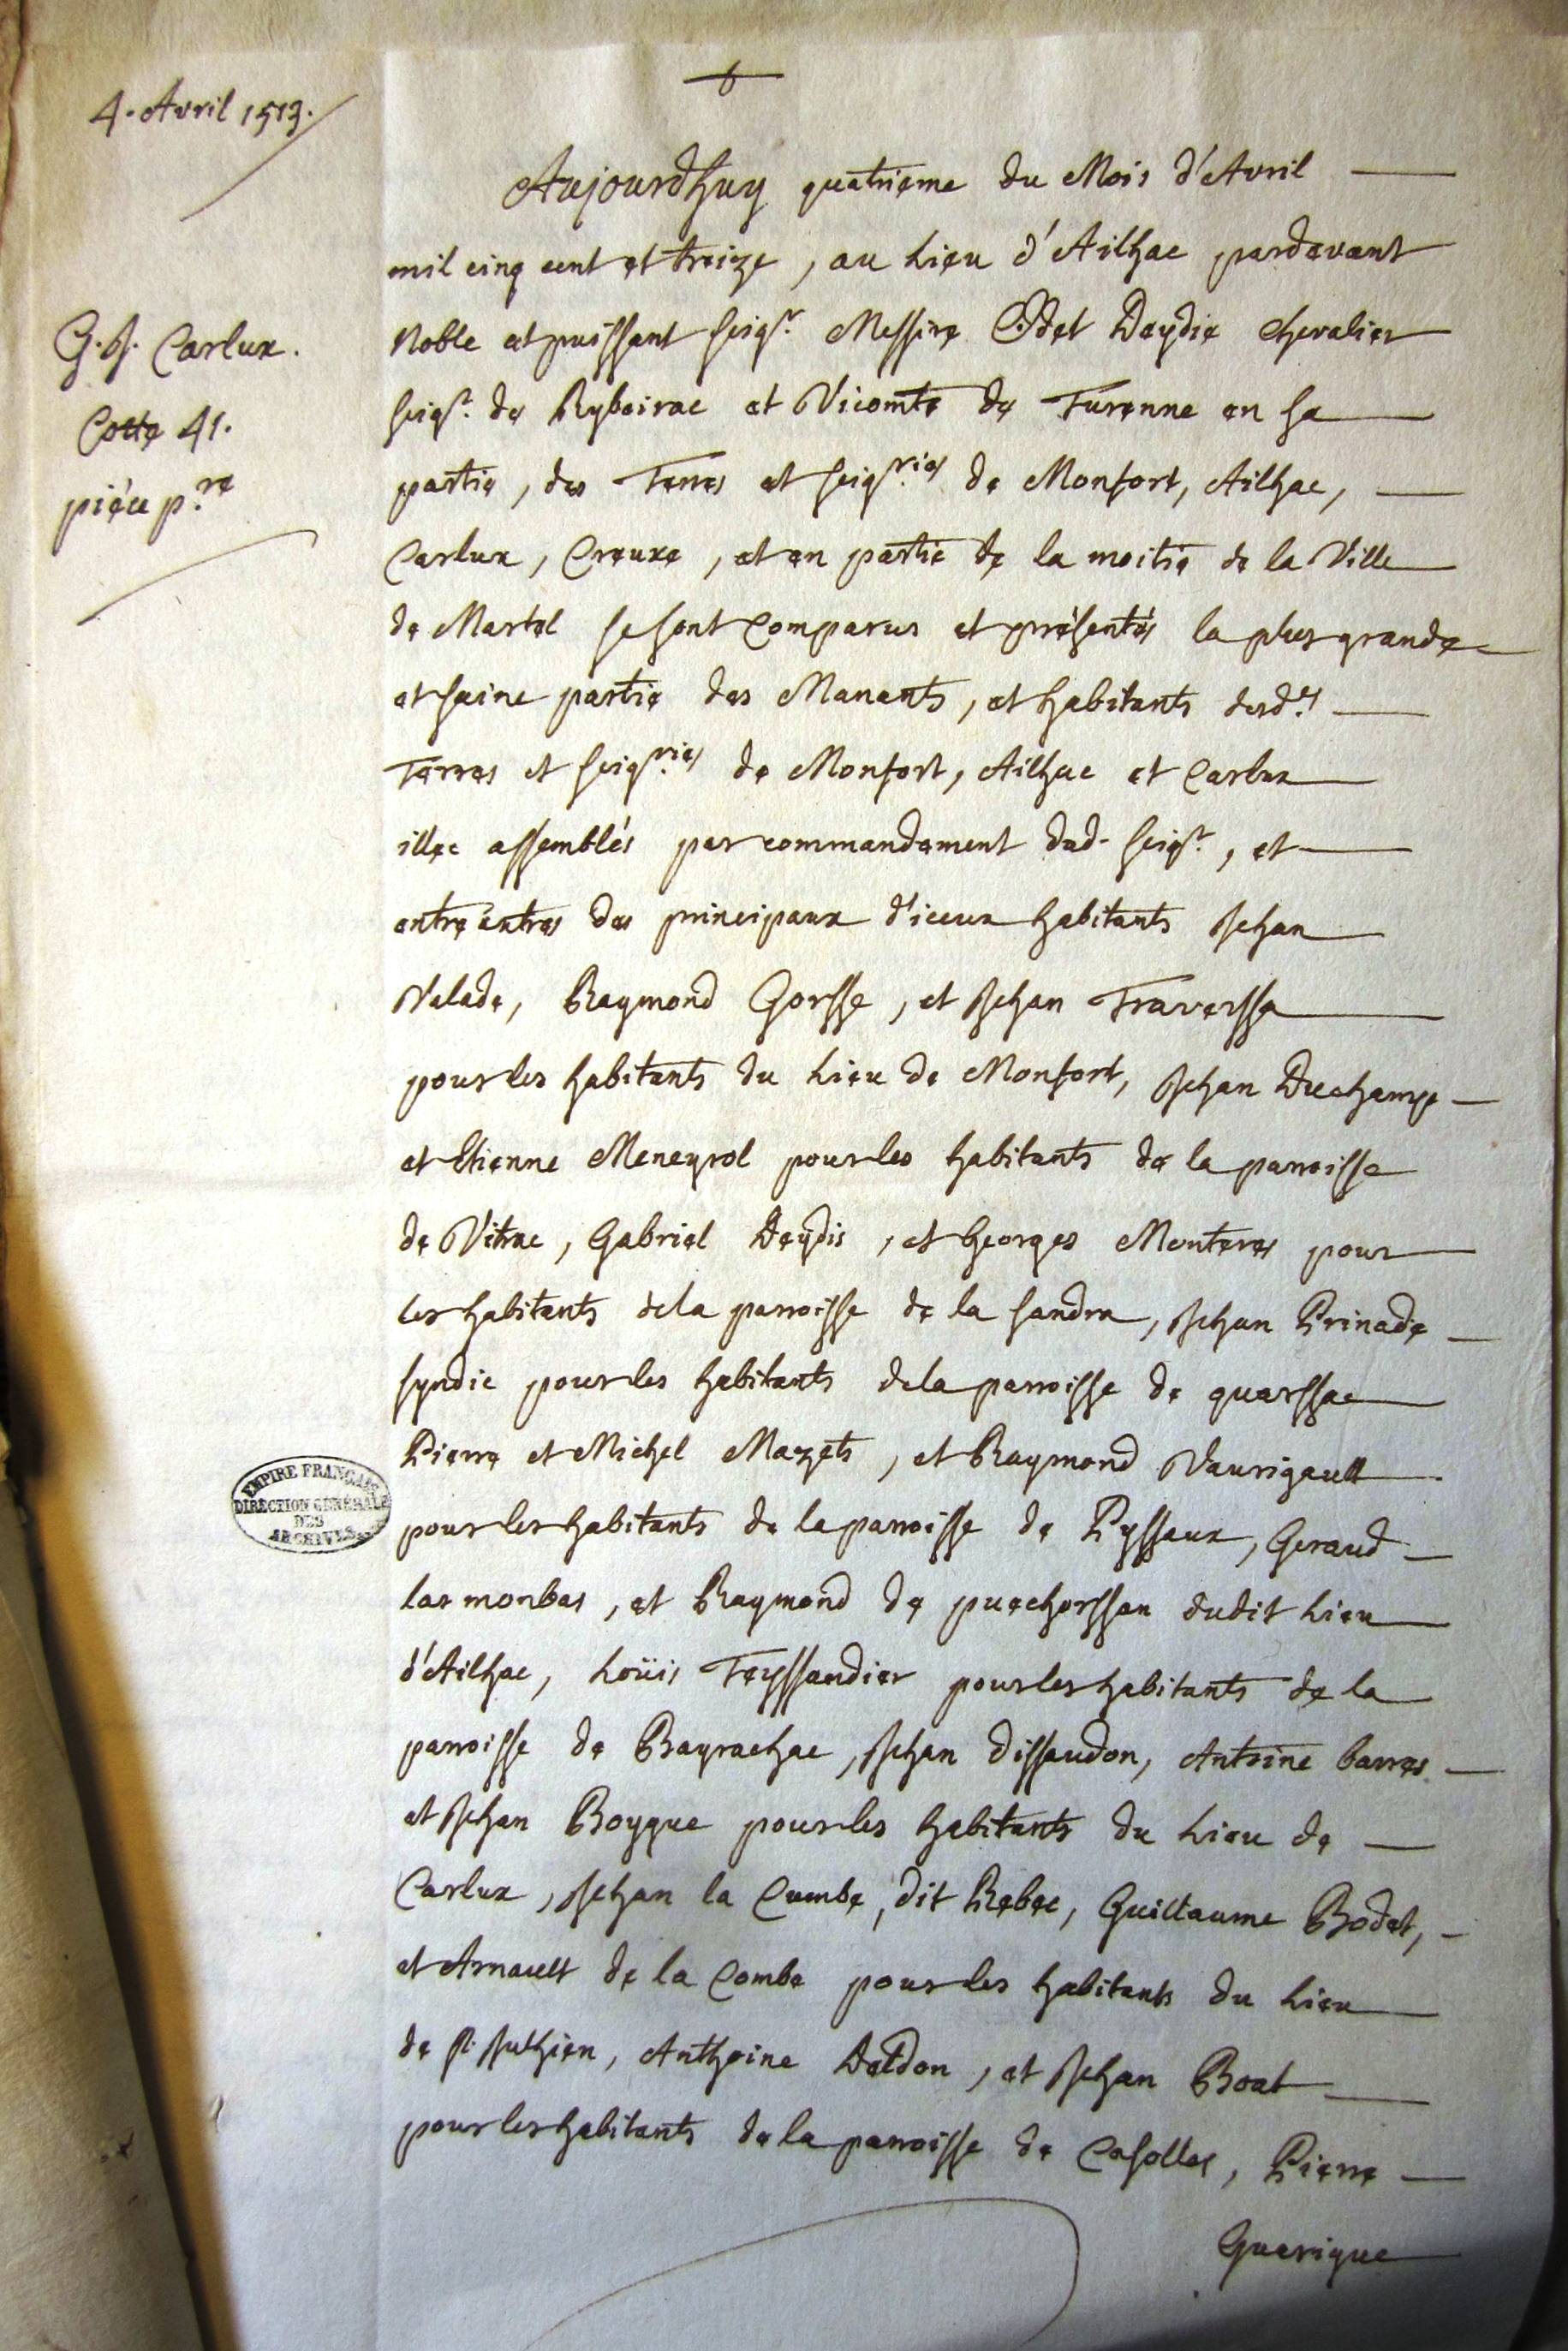 4. Avril 1513.
G.J. Carlux.
Cotte 41.
piéce p.re
Aujourdhuy quatrieme du Mois d'Avril
mil cinq cent et treize, au Lieu d'Ailhac pardevant
Noble et puissant seigr. Messire Odet Deydie Chevalier
seigr. de Rybeirac et Vicomte de Turenne en sa
partie, des Terres et seigr.ies de Monfort, Ailhac,
Carlux, Creuxe, et en partie de la moitie de la Ville
de Martel se sont Comparus et présentés la plus grande
et saine partie des Manants, et habitants desd.es
Terres et seigr.ies de Monfort, Ailhac et Carlux
illec assemblés par commandement dud. seigr., et
entre autres des principaux d'iceux habitants Jehan
Valade, Raymond Gorsse, et Jehan Traversse
pour les habitants du Lieu de Monfort, Jehan Duchamp
et Etienne Meneyrol pour les habitants de la parroisse
de Vitrac, Gabriel Deydis, et Georges Monteres pour
les habitants de la parroisse de la sandra, Jehan Prinade
syndic pour les habitants de la parroisse de quarssac
Pierre et Michel Mazets, et Raymond Vaurigault
pour les habitants de la parroisse de Pyssaux, Geraud
las monbas, et Raymond de puechorssan dudit Lieu
d'Ailhac, Loüis Teyssandier pour les habitants de la
parroisse de Bayrachac, Jehan dissaudon, Antoine barres
et Jehan Boyque pour les habitants du Lieu de
Carlux, Jehan la Cumbe, dit Rebec, Guillaume Bodet,
et Arnault de la Combe pour les habitants du Lieu
de St. Julhien, Anthoine Daldon, et Jehan Boat
pour les habitants de la parroisse de Casolles, Pierre
Guerigue
EMPIRE FRANÇAIS
DIRECTION GÉNÉRALE
DES
ARCHIVES